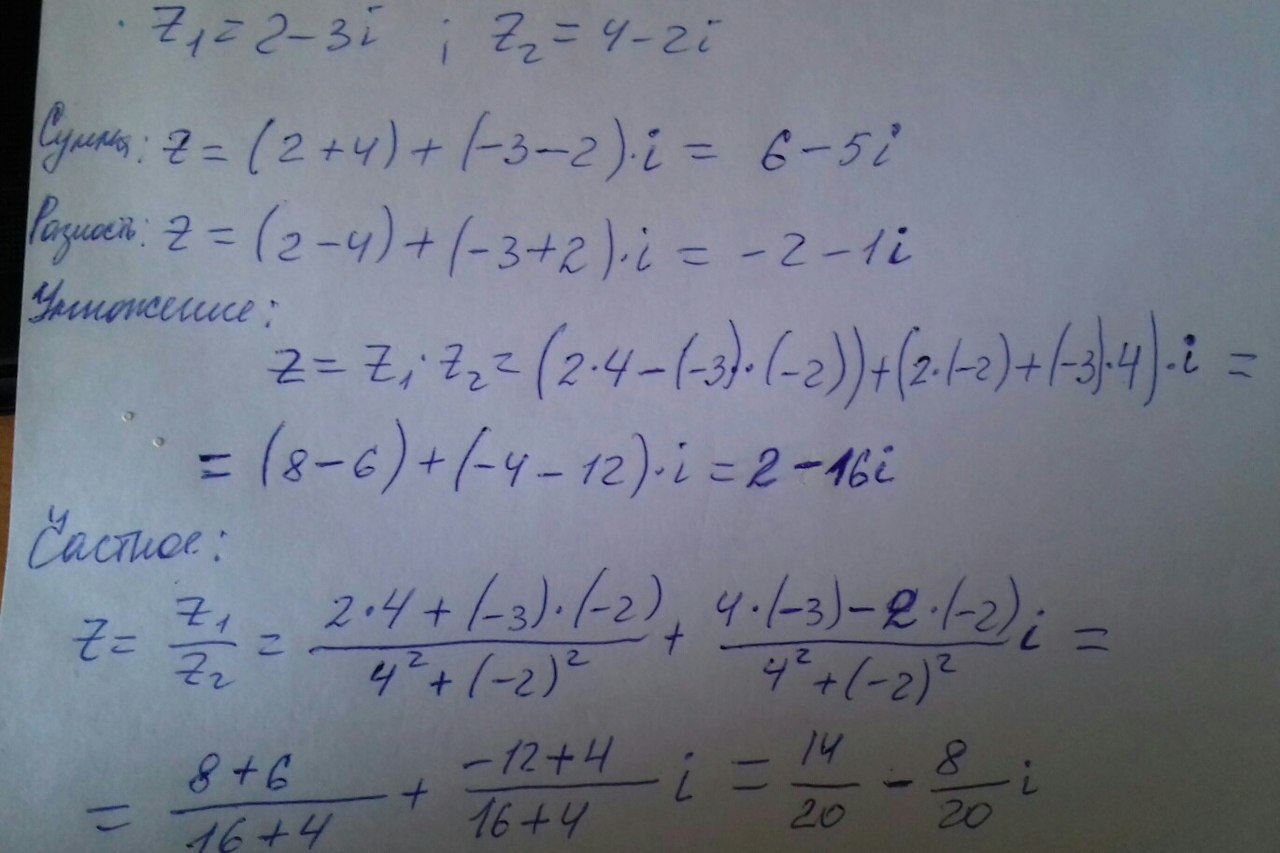 z₁ = 2 - 3i ; z₂ = 4 - 2i
Сумма: z = (2 + 4) + (-3 - 2)·i = 6 - 5i
Разность: z = (2 - 4) + (-3 + 2)·i = -2 - 1i
Умножение:
z = z₁·z₂ = (2·4 - (-3)·(-2)) + (2·(-2) + (-3)·4)·i =
= (8 - 6) + (-4 - 12)·i = 2 - 16i
Частное:
z = z₁/z₂ = (2·4 + (-3)·(-2))/(4² + (-2)²) + (4·(-3) - 2·(-2))/(4² + (-2)²) i =
= (8 + 6)/(16 + 4) + (-12 + 4)/(16 + 4) i = 14/20 - 8/20 i